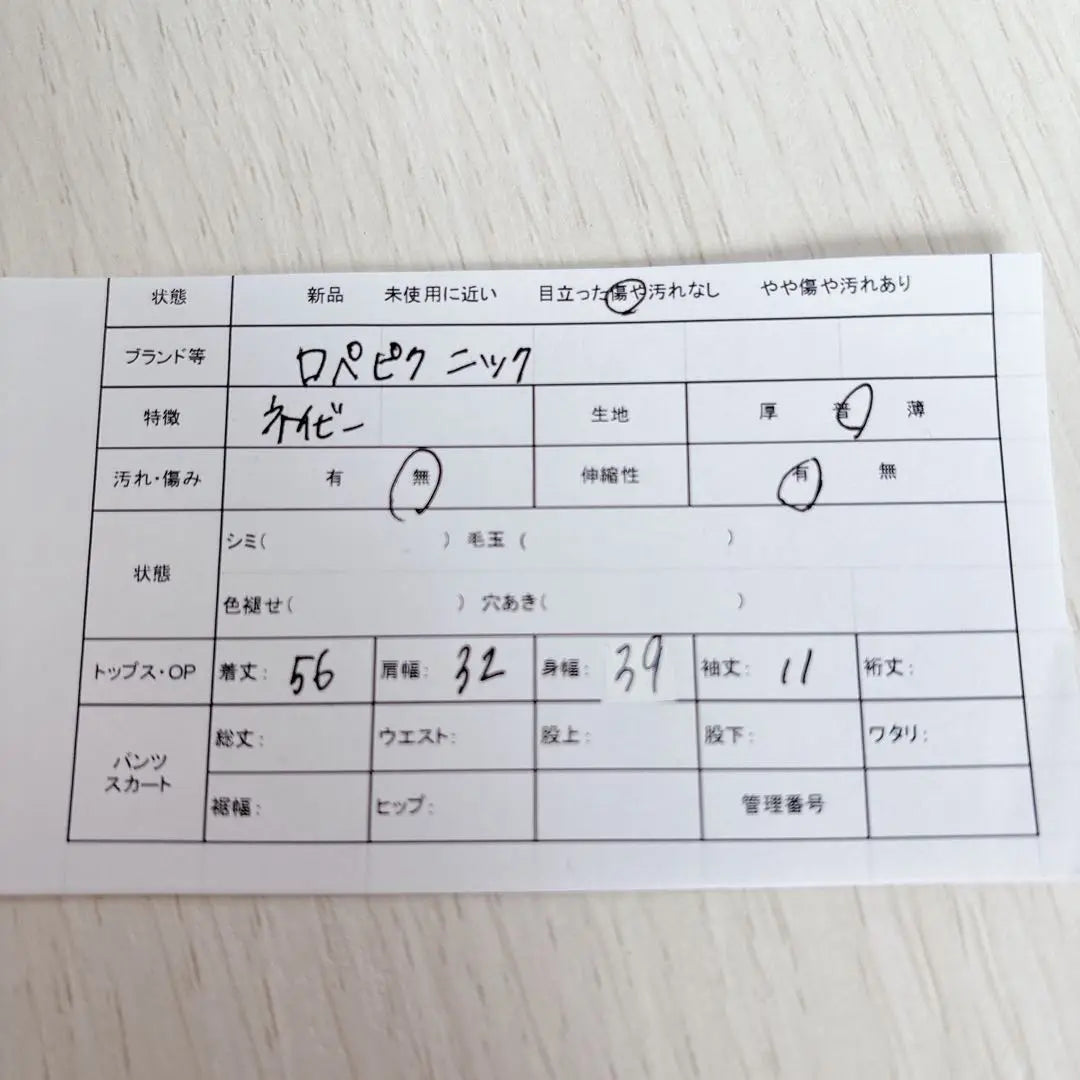 状態 新品 未使用に近い 目立った傷や汚れなし やや傷や汚れあり
ブランド等 ロペピクニック
特徴 ネイビー 生地 厚 普 薄
汚れ・傷み 有 無 伸縮性 有 無
状態 シミ( ) 毛玉 ( )
色褪せ( ) 穴あき( )
トップス・OP 着丈: 56 肩幅: 32 身幅: 39 袖丈: 11 裄丈:
パンツ スカート 総丈: ウエスト: 股上: 股下: ワタリ:
裾幅: ヒップ: 管理番号